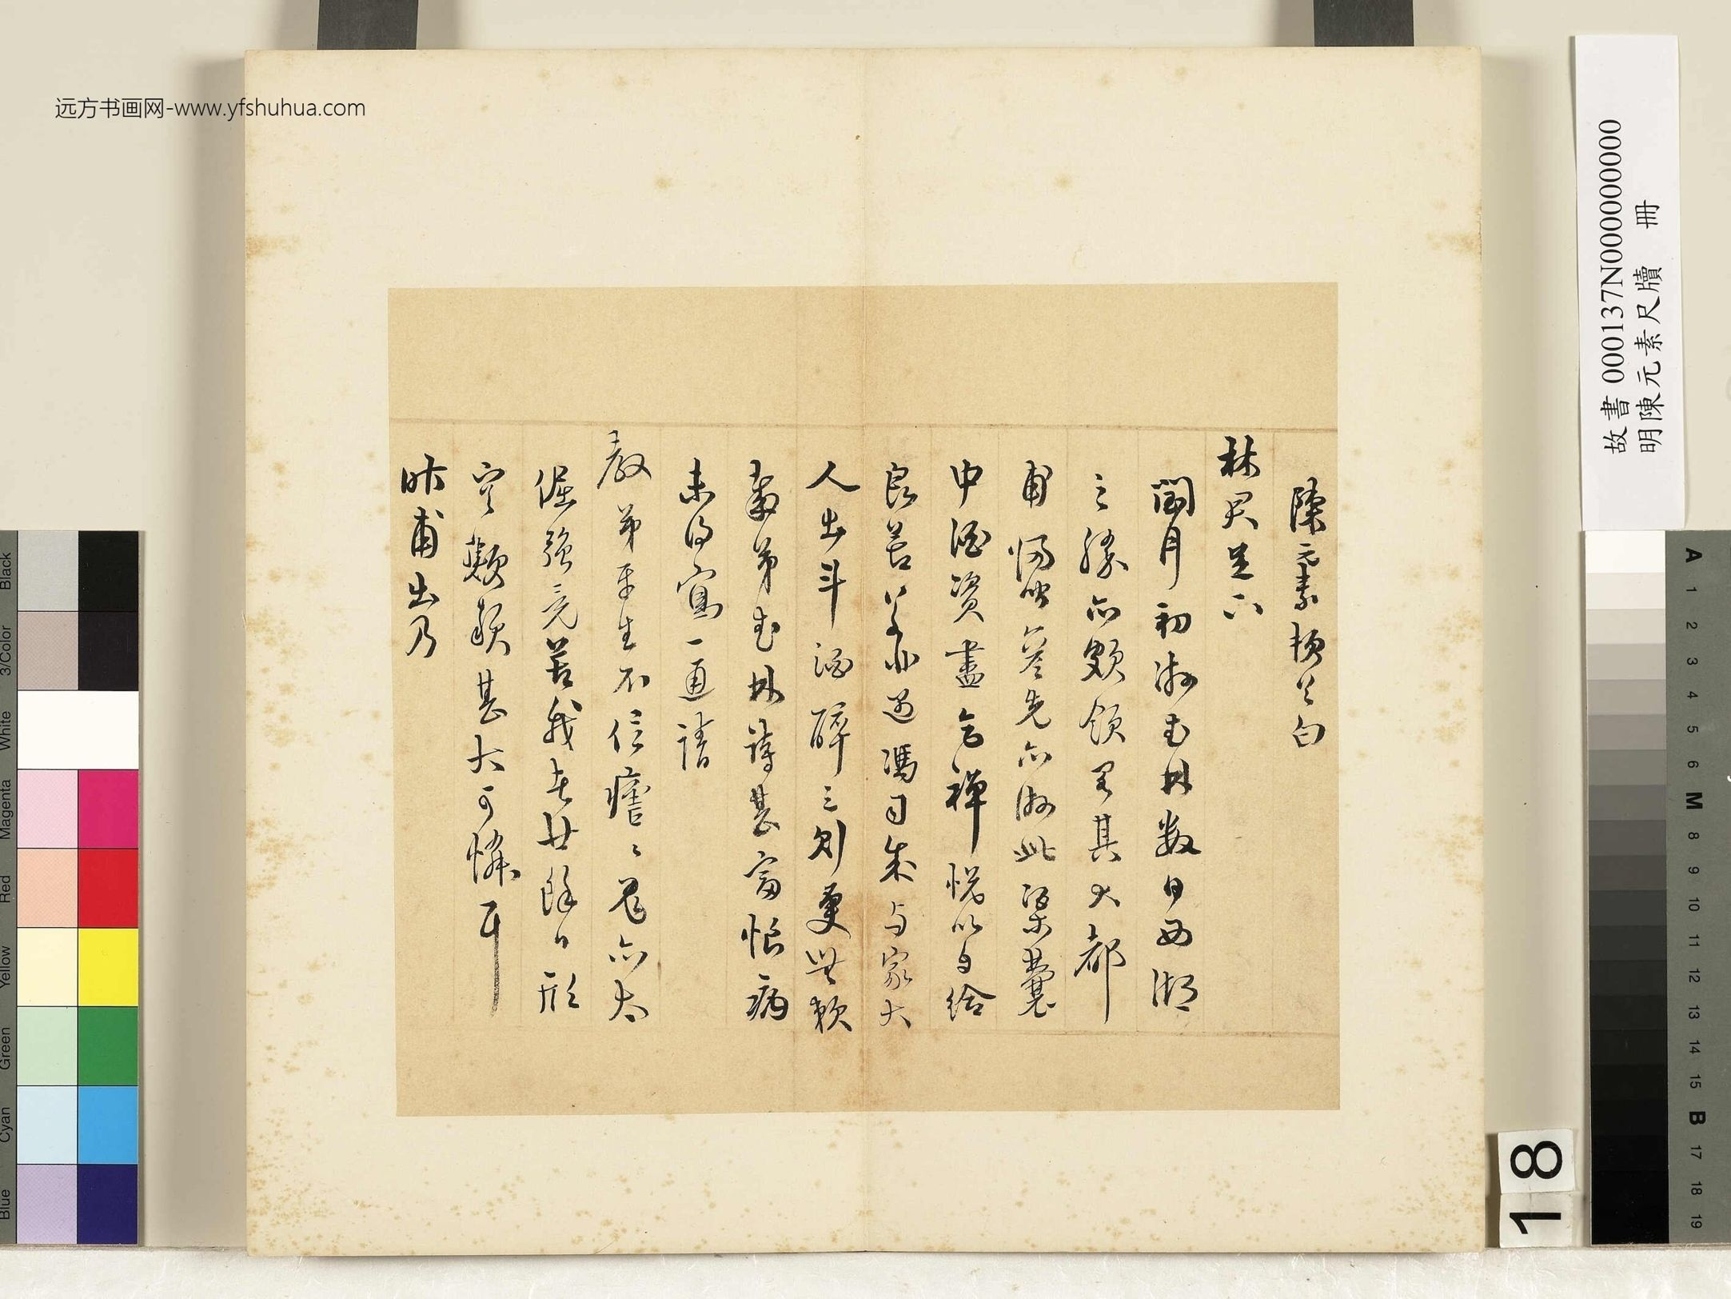 远方书画网-www.yfshuhua.com
故書 000137N000000000
明陳元素尺牘 冊
陳元素頓首白
林君足下
閏月初游武林数日西湖
之勝亦頗領畧其大都
甫歸時答先亦游此梁囊
中酒資盡乞禪悅以自給
良苦昨過馮司成与家大
人出斗酒醉之則更無赖
敝弟武林詩甚富恨病
未得寫一通請
教弟平生不信瘧瘧亦太
倔強竟苦我去廿餘日形
容顇甚大可憐耳
昨甫出乃
18
Black
3/Color
White
Magenta
Red
Yellow
Green
Cyan
Blue
A 1 2 3 4 5 6 M 8 9 10 11 12 13 14 15 B 17 18 19